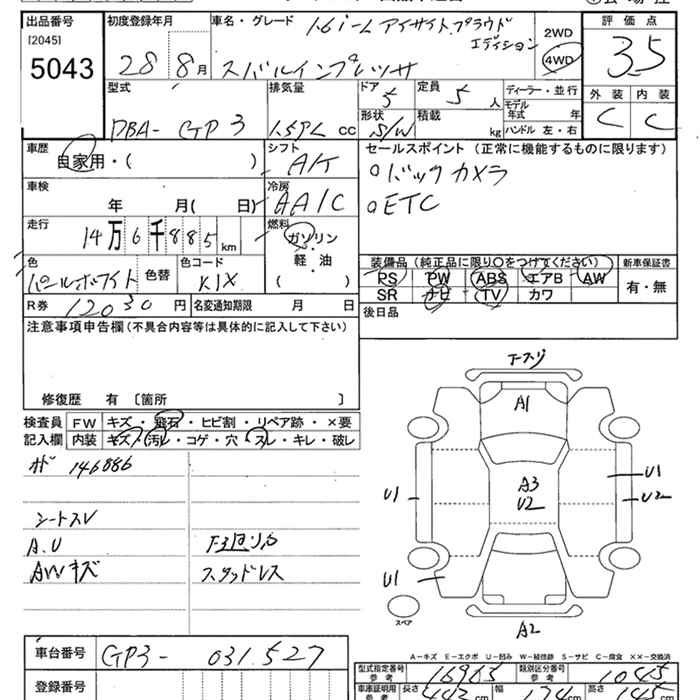 出品番号 初度登録年月 車名・グレード 1.6i-L アイサイト.プラウド 評価点
[2045] エディション 2WD
5043 28 8月 スバルインプレッサ 4WD 3.5
型式 排気量 ドア 5 定員 5人 ディーラー・並行 外装 内装
モデル年式 年
DBA- GP3 cc 形状 S/W 積載 kg ハンドル 左・右 C C
車歴 シフト セールスポイント (正常に機能するものに限ります)
自家用・( ) A/K 。バックカメラ
車検 冷房 。ETC
年 月( 日) AA/C
走行 燃料
14万6千885km ガソリン
軽・油
( )
装備品 (純正品に限り〇をつけてください) 新車保証書
色 パールホワイト 色替 色コード K1X PS PW ABS エアB AW 有・無
SR ナビ TV カワ
R券 12030円 名変通知期限 月 日 後日品
注意事項申告欄 (不具合内容等は具体的に記入して下さい)
修復歴 有 [箇所 ]
検査員 FW キズ・飛石・ヒビ割・リペア跡・×要
記入欄 内装 キズ・汚レ・コゲ・穴・スレ・キレ・破レ
146886
シートスV
A.U
AWキズ スタッドレス
A1
A3
U2
U1
U1
U2
U1
スペア
A2
A-キズ E-エクボ U-凹み W-補修跡 S-サビ C-腐食 ××-交換済
車台番号 GP3- 031527
型式指定番号 参考 16965 類別区分番号 参考 1045
登録番号
車庫証明用 参考 長さ 442cm 幅 174cm 高さ 145cm